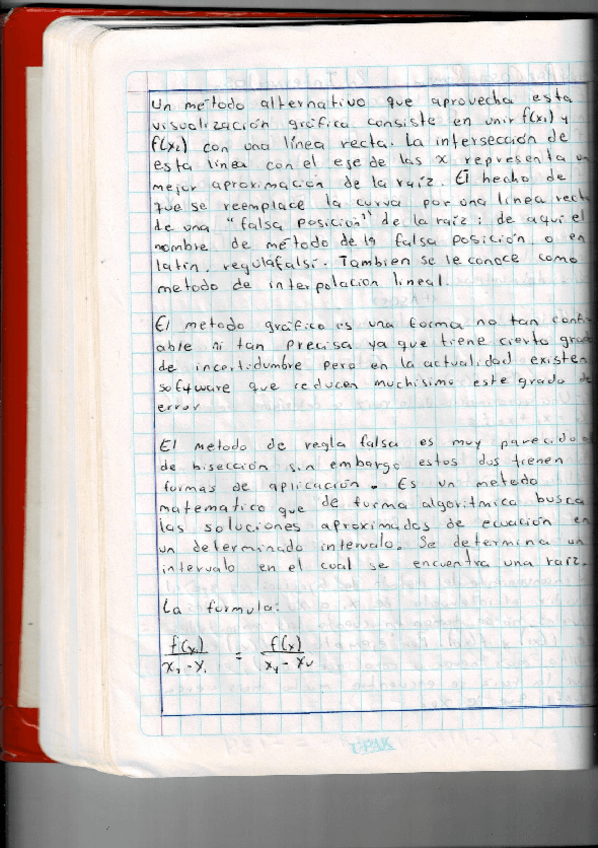 Un método alternativo que aprovecha esta
visualización gráfica consiste en unir f(x₁) y
f(x₂) con una línea recta. La intersección de
esta línea con el eje de las x representa un
mejor aproximación de la raíz. El hecho de
que se reemplace la curva por una línea rect
de una "falsa posición" de la raíz; de aquí el
nombre de método de la falsa posición o en
latín, regulafalsi. Tambien se le conoce como
metodo de interpolación lineal.
El metodo gráfico es una forma no tan confi
able ni tan precisa ya que tiene cierto grado
de incertidumbre pero en la actualidad existen
software que reducen muchisimo este grado de
error
El metodo de regla falsa es muy parecido al
de bisección sin embargo estos dos tienen
formas de aplicación. Es un metodo
matematico que de forma algoritmica busca
las soluciones aproximadas de ecuación en
un determinado intervalo. Se determina un
intervalo en el coal se encuentra una raiz.
La formula:
f(x) / = f(x) /
UPAK